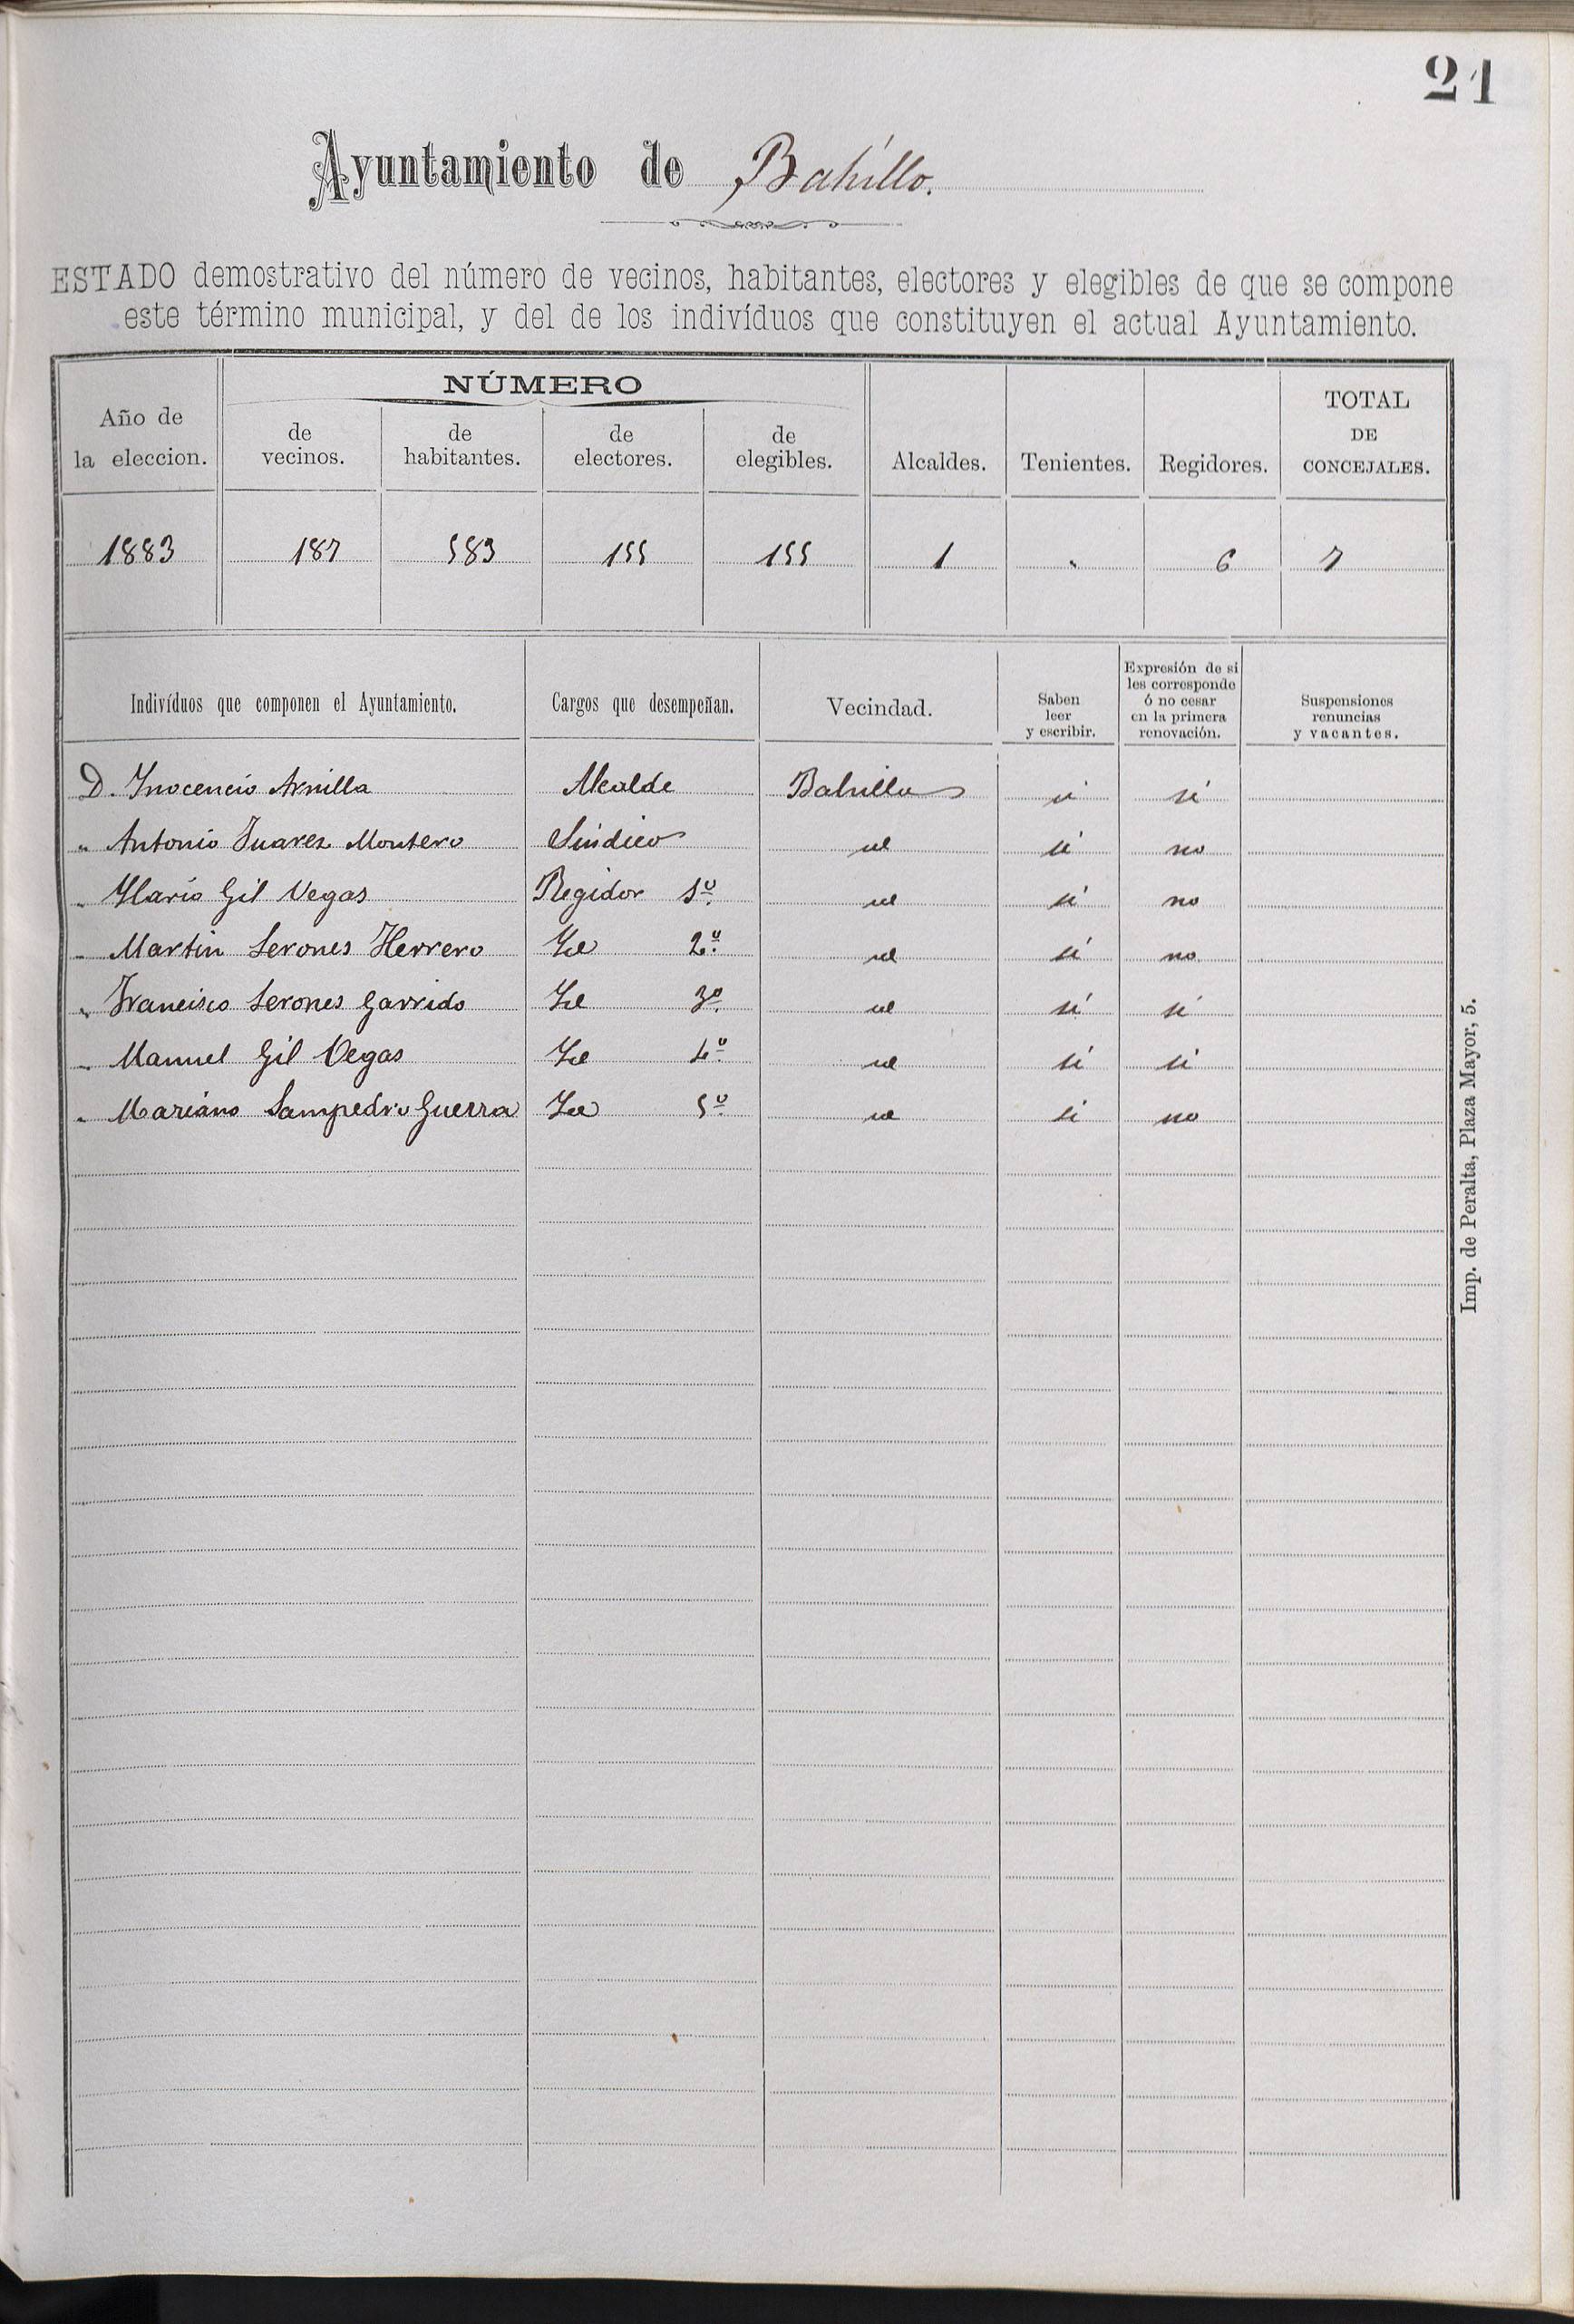 21
Ayuntamiento de Bahillo.
ESTADO demostrativo del número de vecinos, habitantes, electores y elegibles de que se compone
este término municipal, y del de los indivíduos que constituyen el actual Ayuntamiento.
Año de la eleccion. NÚMERO de vecinos. de habitantes. de electores. de elegibles. Alcaldes. Tenientes. Regidores. TOTAL DE CONCEJALES.
1883 187 583 155 155 1 " 6 7
Indivíduos que componen el Ayuntamiento. Cargos que desempeñan. Vecindad. Saben leer y escribir. Expresión de si les corresponde ó no cesar en la primera renovación. Suspensiones renuncias y vacantes.
D. Inocencio Arnilla Alcalde Bahillo si si
" Antonio Juarez Montero Síndico id si no
" Ylario Gil Vegas Regidor 1º. id si no
" Martin Serones Herrero Id 2º. id si no
" Francisco Serones Garrido Id 3º. id si si
" Manuel Gil Vegas Id 4º. id si si
" Mariano Sampedro Guerra Id 5º id si no
Imp. de Peralta, Plaza Mayor, 5.